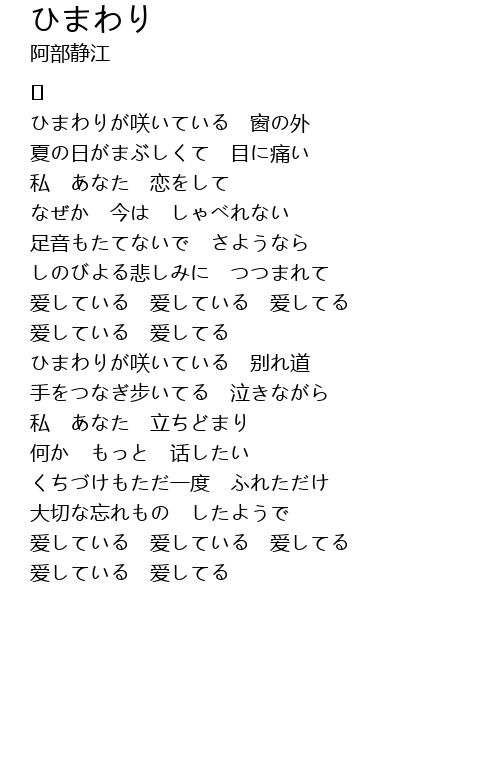 ひまわり
阿部静江
[]
ひまわりが咲いている　窗の外
夏の日がまぶしくて　目に痛い
私　あなた　恋をして
なぜか　今は　しゃべれない
足音もたてないで　さようなら
しのびよる悲しみに　つつまれて
爱している　爱している　爱してる
爱している　爱してる
ひまわりが咲いている　别れ道
手をつなぎ歩いてる　泣きながら
私　あなた　立ちどまり
何か　もっと　話したい
くちづけもただ一度　ふれただけ
大切な忘れもの　したようで
爱している　爱している　爱してる
爱している　爱してる